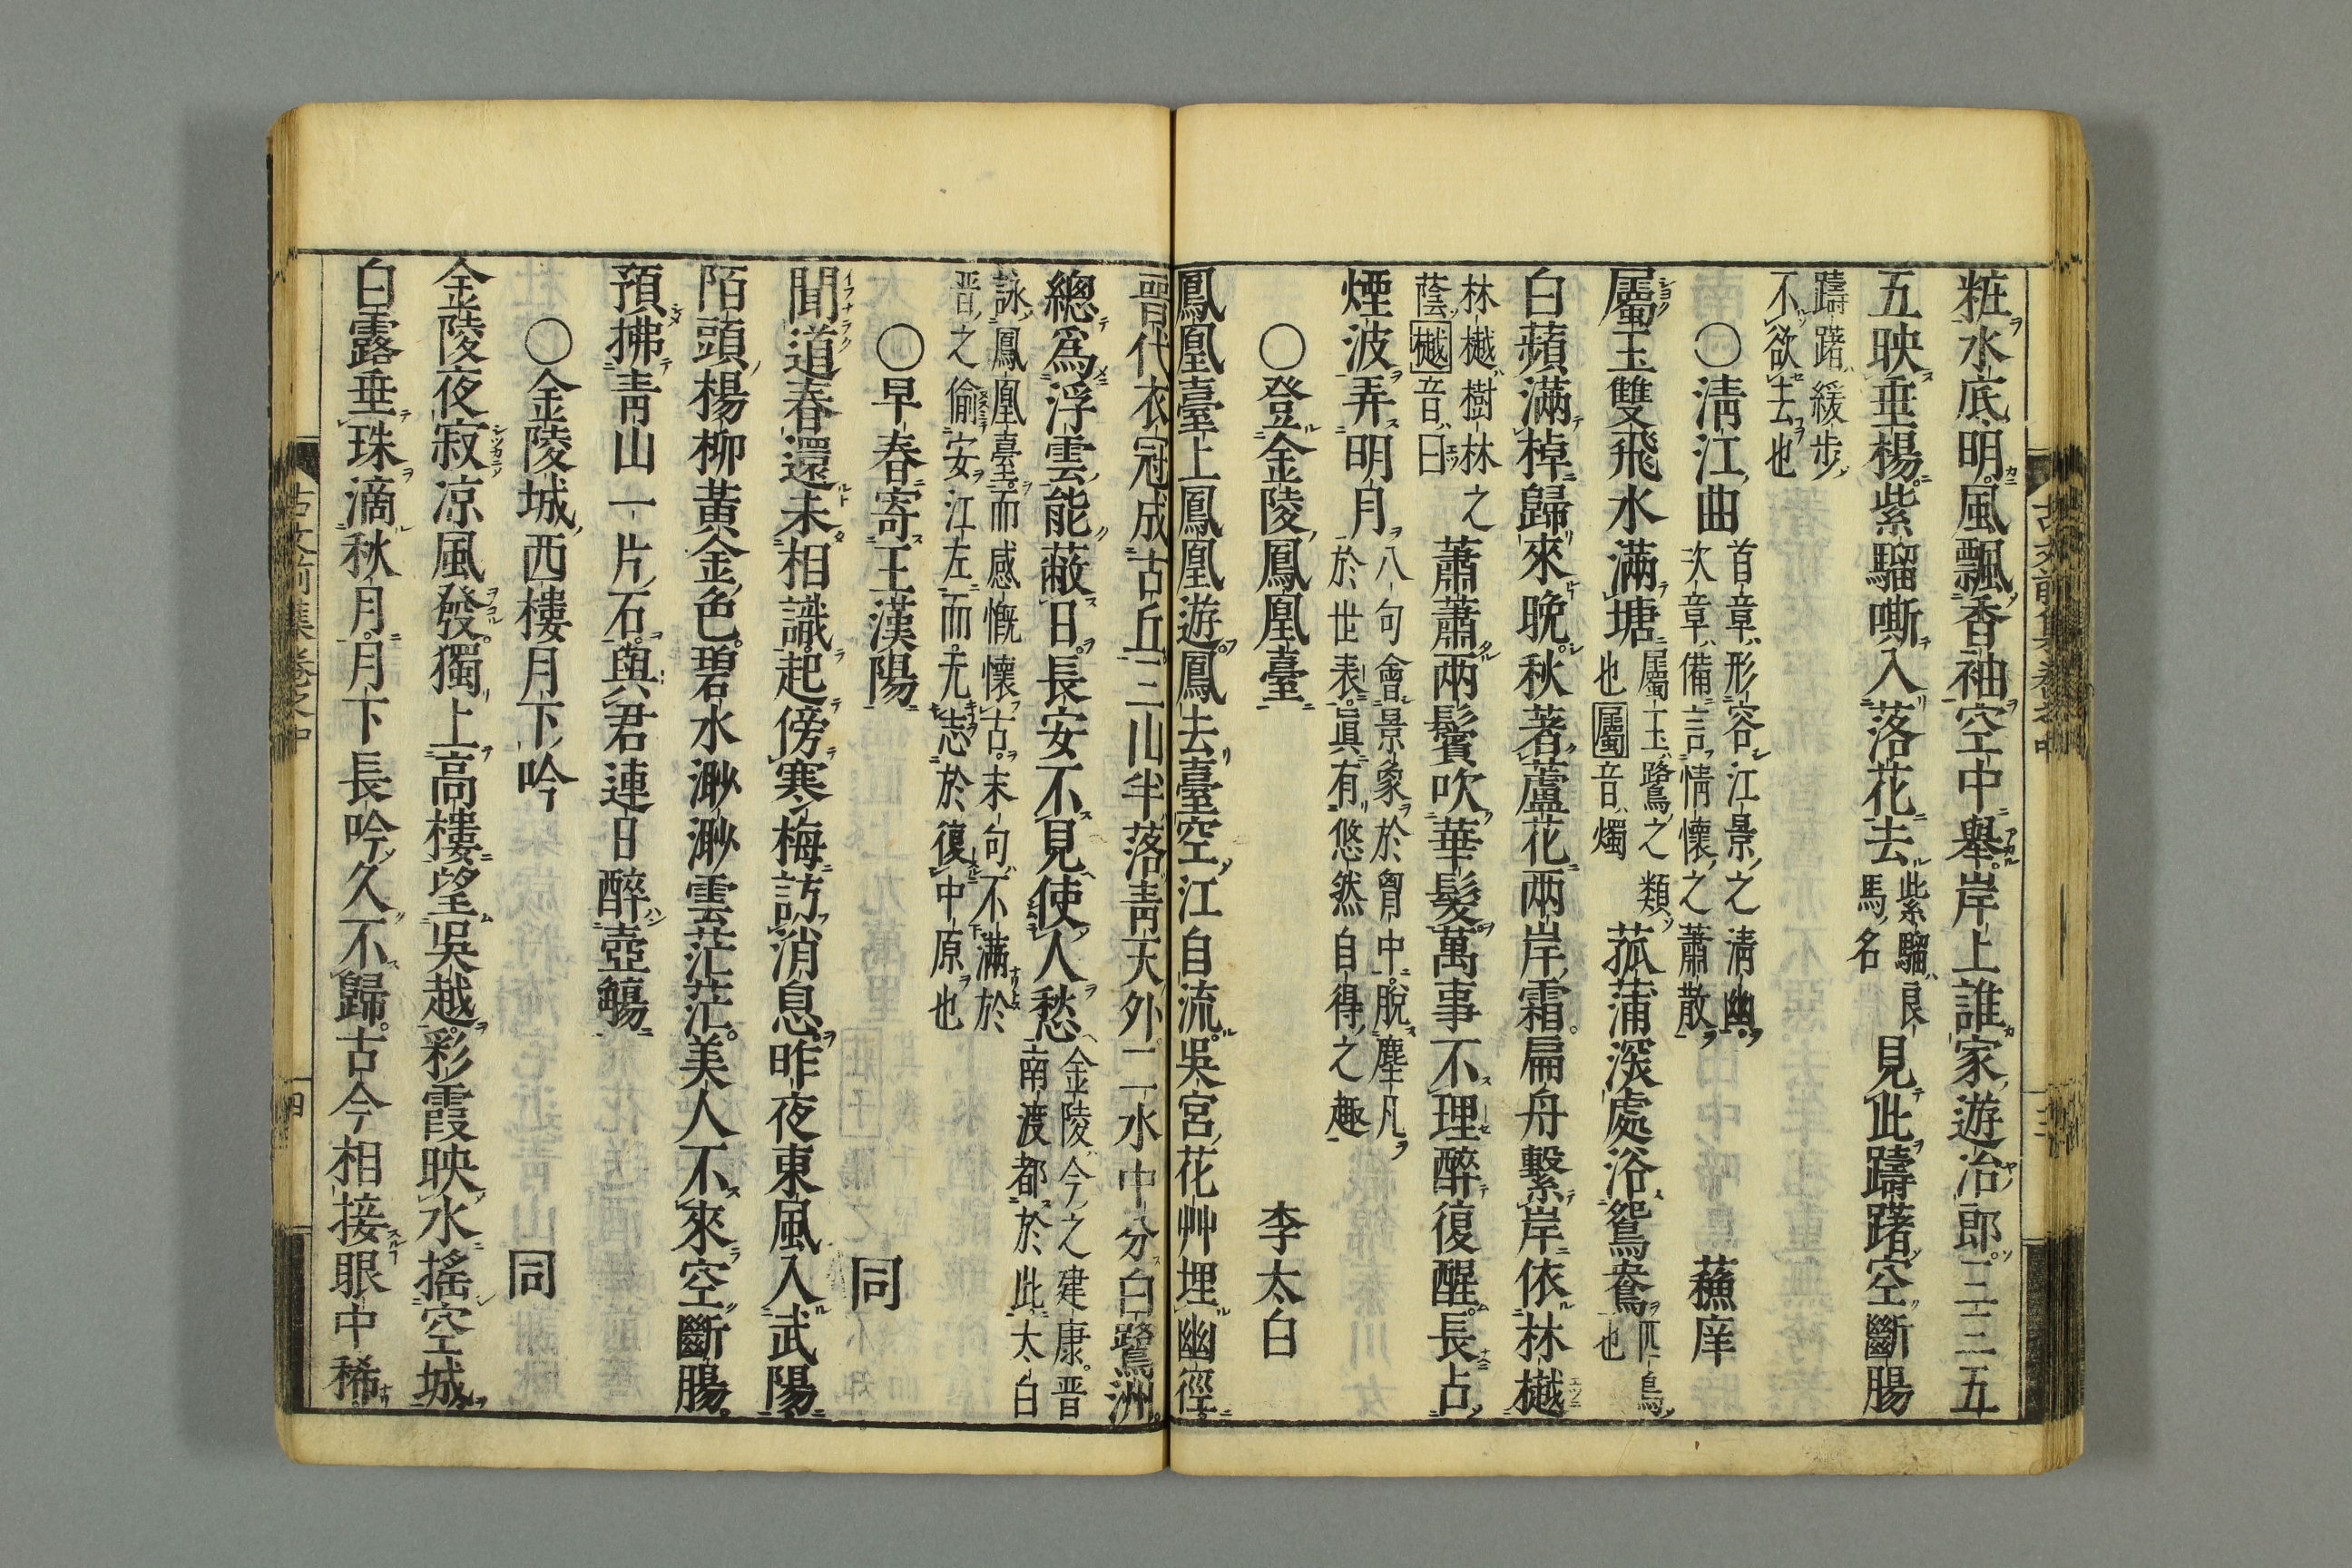 粧水底明風飄香袖空中舉岸上誰家遊冶郎三三五
五映垂楊紫騮嘶入落花去紫騮良馬名見此躊躇空斷腸
躊躇緩步不欲去也
〇淸江曲首章形容江景之淸幽次章備言情懷之蕭散 蘓庠
屬玉雙飛水滿塘屬玉鷺之類也屬音燭菰蒲深處浴鴛鴦匹鳥也
白蘋滿棹歸來晚秋著蘆花兩岸霜扁舟繫岸依林樾
林樾樹林之蔭樾音曰蕭蕭兩鬢吹華髮萬事不理醉復醒長占
煙波弄明月八句會景象於胷中脫塵凡於世表眞有悠然自得之趣
〇登金陵鳳凰臺 李太白
鳳凰臺上鳳凰遊鳳去臺空江自流吳宮花艸埋幽徑
晉代衣冠成古丘三山半落靑天外二水中分白鷺洲
總爲浮雲能蔽日長安不見使人愁金陵今之建康晋南渡都於此太白
詠鳳凰臺而感慨懷古末句不滿於晋之偷安江左而无志於復中原也
〇早春寄王漢陽 同
聞道春還未相識起傍寒梅訪消息昨夜東風入武陽
陌頭楊柳黃金色碧水渺渺雲茫茫美人不來空斷腸
預拂靑山一片石與君連日醉壺觴
〇金陵城西樓月下吟 同
金陵夜寂凉風發獨上高樓望吳越彩霞映水搖空城
白露垂珠滴秋月月下長吟久不歸古今相接眼中稀
古文前集卷之中
四